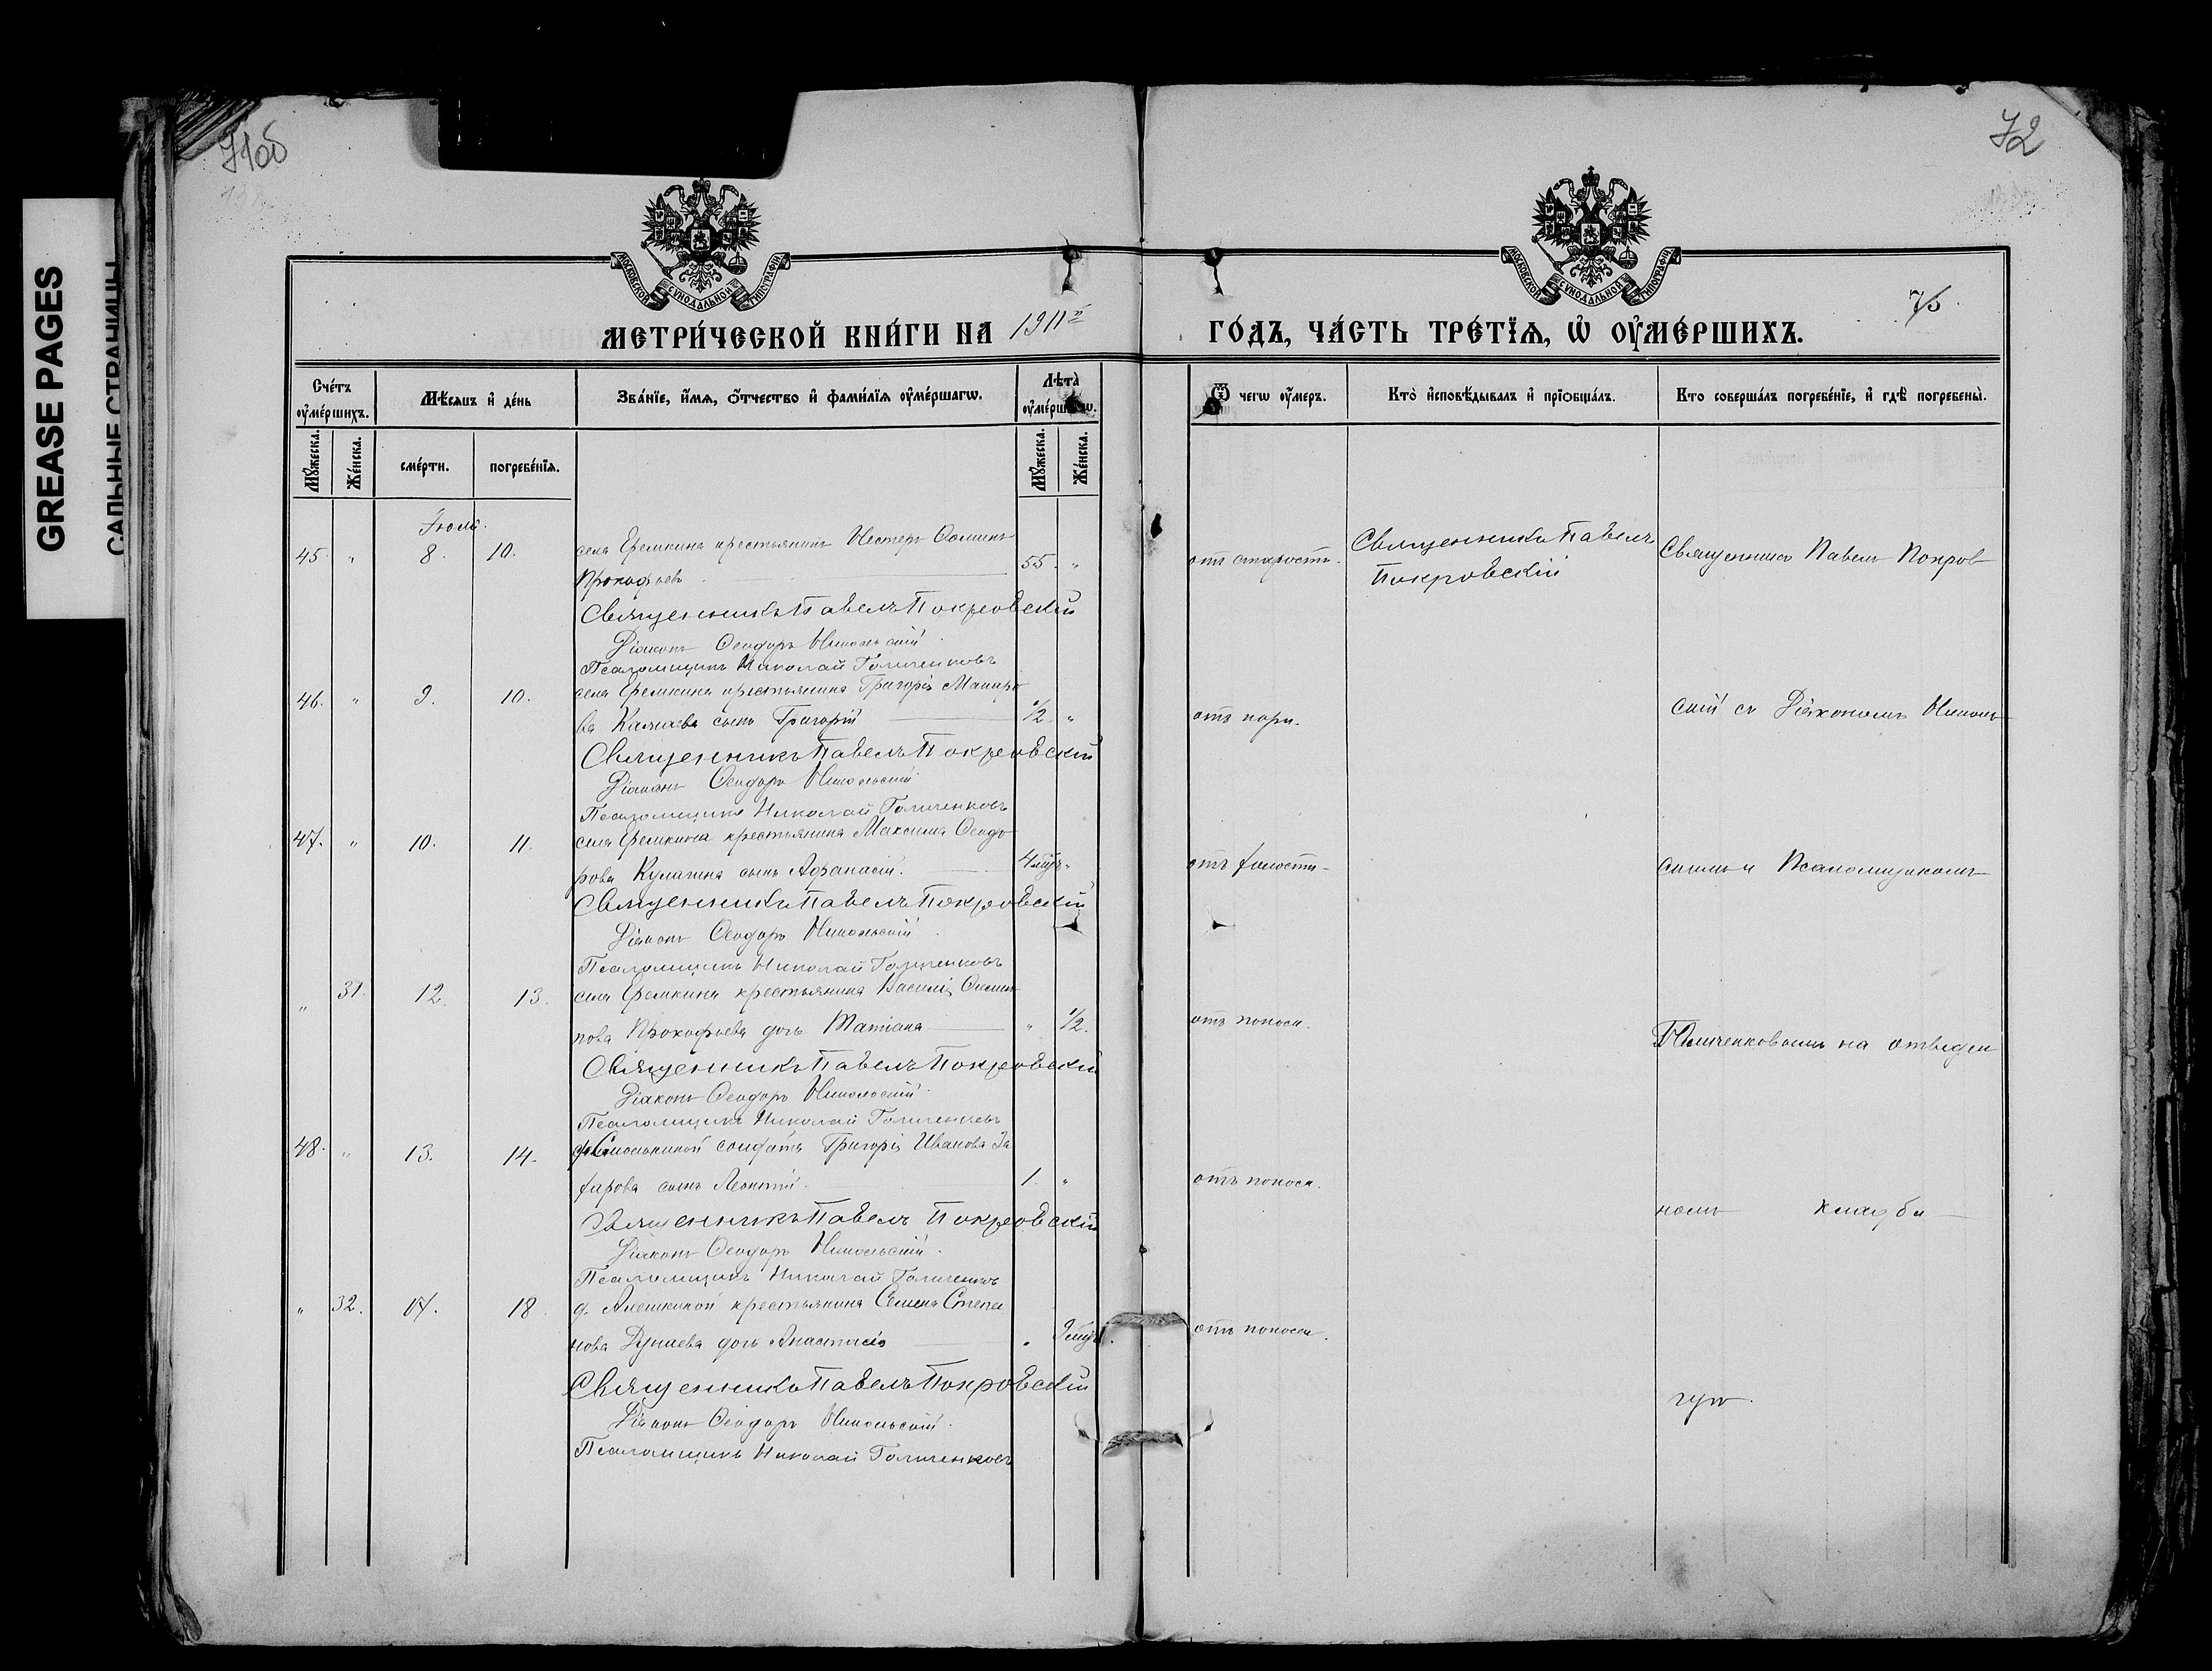 GREASE PAGES
САЛЬНЫЕ СТРАНИЦЫ
71об
72
75
МОСКОВСКОЙ СѴНОДАЛЬНОЙ ТИПОГРАФІИ
МОСКОВСКОЙ СѴНОДАЛЬНОЙ ТИПОГРАФІИ
МЕТРИ́ЧЕСКОЙ КНИ́ГИ НА 1911й ГО́ДЪ, ЧА́СТЬ ТРЕ́ТЇѦ, Ѡ҆ ОУ҆МЕ́РШИХЪ.
Сче́тъ оу҆ме́ршихъ. Мѣ́сѧцъ и҆ де́нь Зва́нїе, и҆́мѧ, ѻ҆́тчество и҆ фами́лїѧ оу҆ме́ршагѡ. Лѣта̀ оу҆ме́ршагѡ. Ѿ чегѡ̀ оу҆́меръ. Кто̀ и҆сповѣ́дывалъ и҆ прїобща́лъ. Кто соверша́лъ погребе́нїе, и҆ гдѣ̀ погребены̀.
Мꙋ́жеска. Же́нска. сме́рти. погребе́нїѧ. Мꙋ́жеска. Же́нска.
Іюль.
45. " 8. 10. села Еремкина крестьянинъ Нестеръ Фоминъ
Прокофьевъ 55. " отъ старости. Священникъ Павелъ Покровскій Священникъ Павелъ Покров
Священникъ Павелъ Покровскій
Діаконъ Ѳеодоръ Никольскій
Псаломщикъ Николай Голиченковъ
46. " 9. 10. села Еремкина крестьянина Григорія Макаро
ва сынъ Григорій 1/2. " отъ кори. скій съ Діакономъ Николь
Священникъ Павелъ Покровскій
Діаконъ Ѳеодоръ Никольскій
Псаломщикъ Николай Голиченковъ
47. " 10. 11. села Еремкина крестьянина Максима Ѳеодо
рова Кулагина сынъ Аѳанасій. 4 " отъ скимъ и Псаломщикомъ
Священникъ Павелъ Покровскій
Діаконъ Ѳеодоръ Никольскій
Псаломщикъ Николай Голиченковъ
" 31. 12. 13. села Еремкина крестьянина Василія
Прокофьева дочь Татіана " 1/2. отъ поноса. Голиченковымъ на отведен
Священникъ Павелъ Покровскій
Діаконъ Ѳеодоръ Никольскій
Псаломщикъ Николай Голиченковъ
48. " 13. 14. солдата Григорія Иванова За
харова сынъ Леонтій. 1. " отъ поноса. номъ кладби
Священникъ Павелъ Покровскій
Діаконъ Ѳеодоръ Никольскій
Псаломщикъ Николай Голиченковъ
" 32. 17. 18. д. Алешкиной крестьянина Семена Степа
нова Дунаева дочь Анастасія " отъ поноса. щѣ.
Священникъ Павелъ Покровскій
Діаконъ Ѳеодоръ Никольскій
Псаломщикъ Николай Голиченковъ